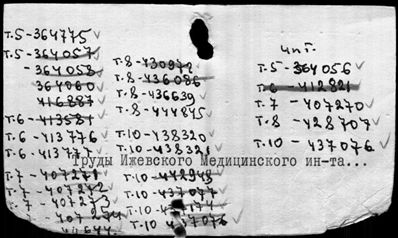 т.5-364775
т.5-364057
-364058
364060
416887
т.6-413581
т.6-413776
т.6-413777
т.7-407271
т.7-407272
т.7-407273
т.8-430972
т.8-436086
т.8-436639
т.8-444845
т.10-438320
т.10-438321
т.10-442945
т.10-437077
т.10-437076
чит.
т.5-364056
т.6-412821
т.7-407270
т.8-428707
т.10-437076
Труды Ижевского Медицинского ин-та...